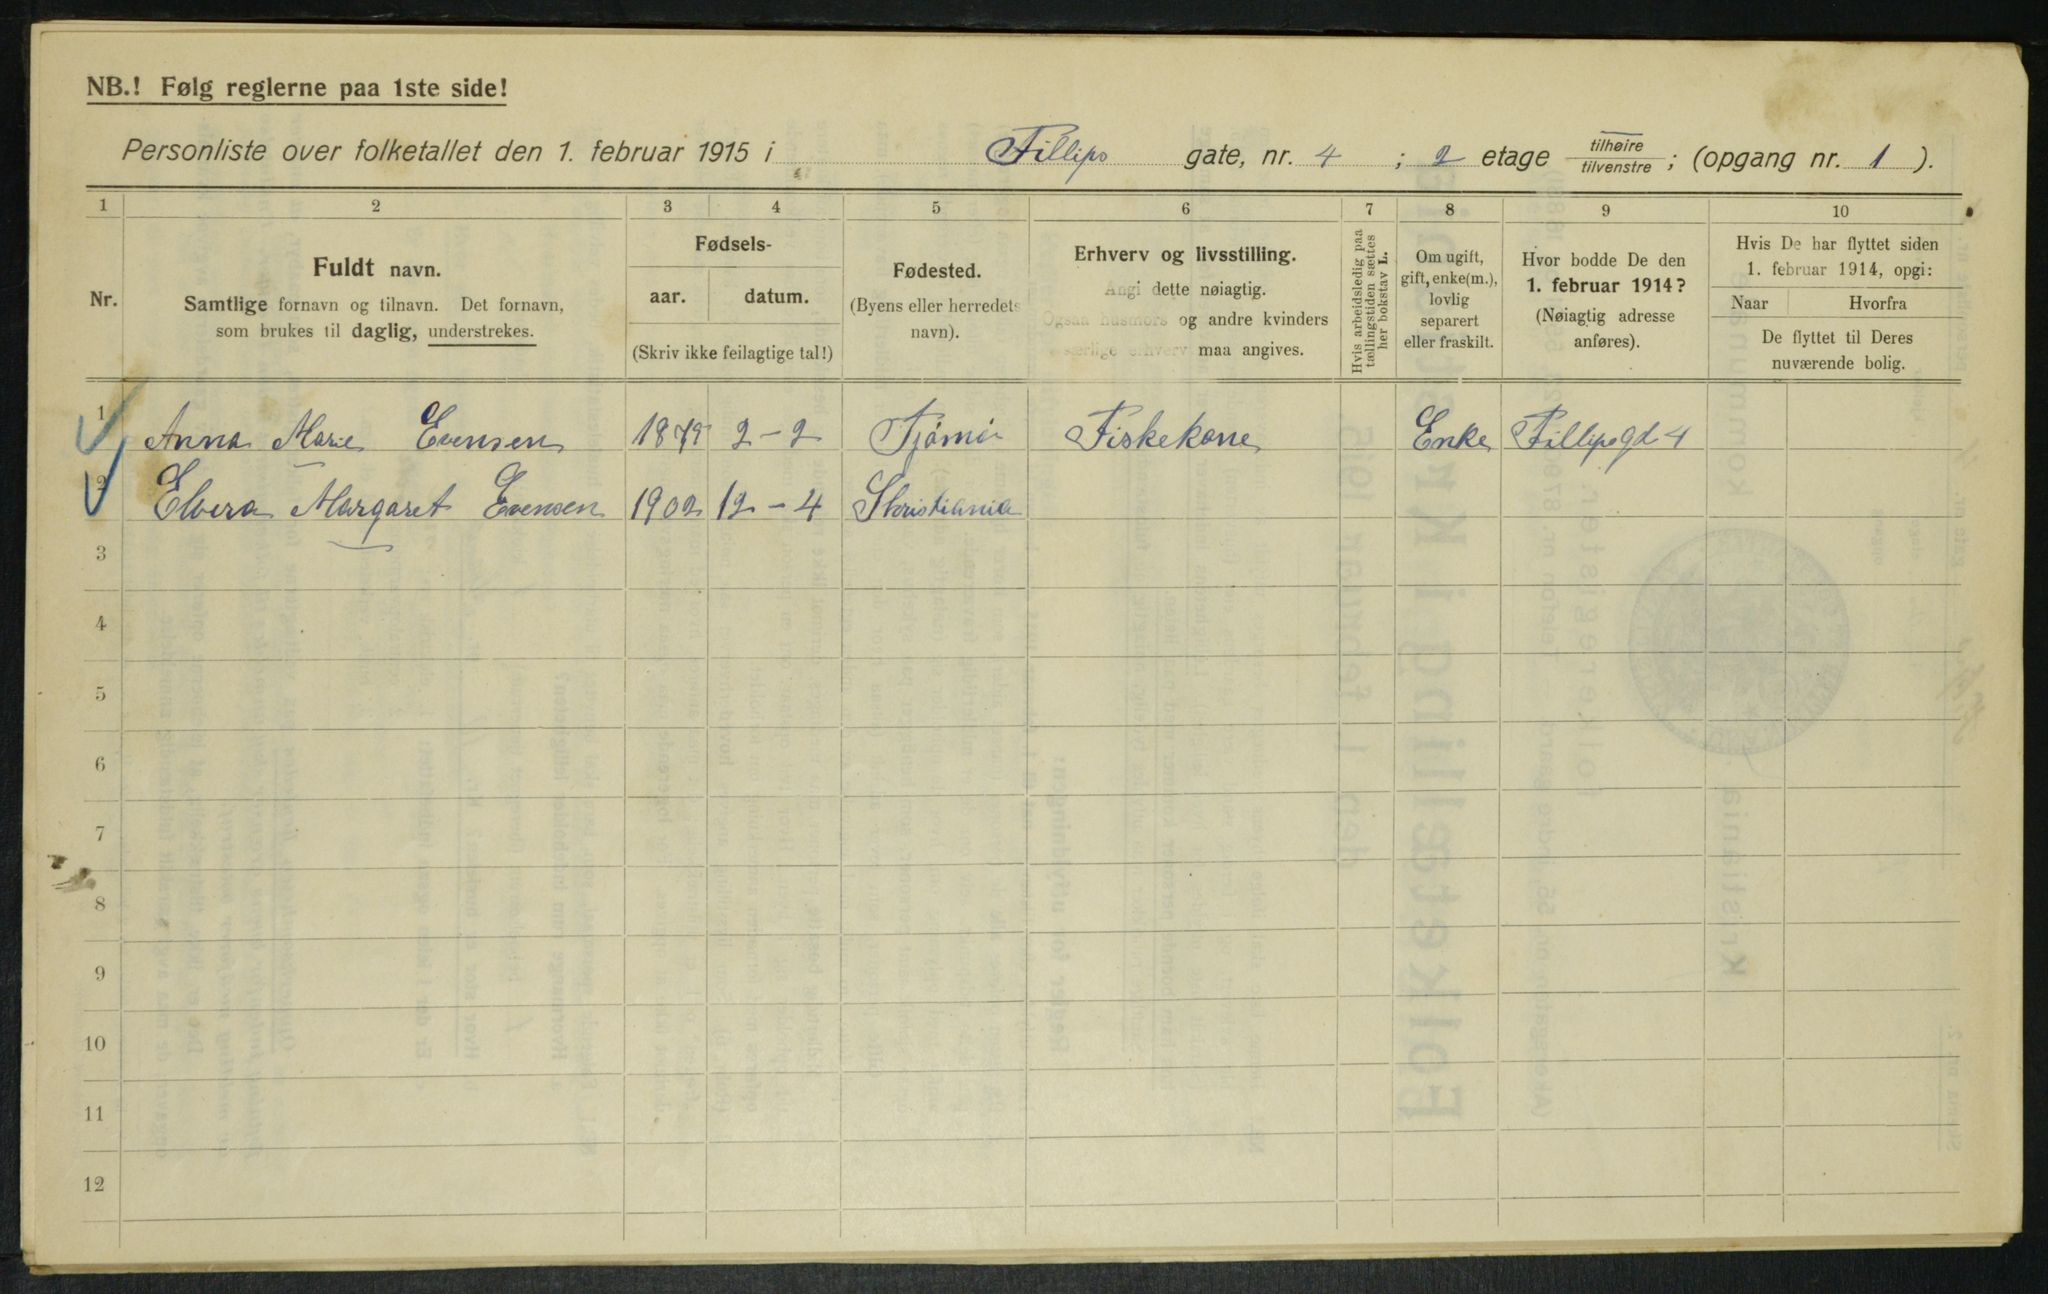 NB.! Følg reglerne paa 1ste side!
Personliste over folketallet den 1. februar 1915 i Fillips gate, nr. 4 ; 2 etage tilhøire/tilvenstre ; (opgang nr. 1 ).
1 2 3 4 5 6 7 8 9 10
Nr.
Fuldt navn.
Samtlige fornavn og tilnavn. Det fornavn,
som brukes til daglig, understrekes.
Fødsels-
aar. datum.
(Skriv ikke feilagtige tal!)
Fødested.
(Byens eller herredets
navn).
Erhverv og livsstilling.
Angi dette nøiagtig.
Ogsaa husmors og andre kvinders
særlige erhverv maa angives.
Hvis arbeidsledig paa
tællingstiden sættes
her bokstav L.
Om ugift,
gift, enke(m.),
lovlig
separert
eller fraskilt.
Hvor bodde De den
1. februar 1914?
(Nøiagtig adresse
anføres).
Hvis De har flyttet siden
1. februar 1914, opgi:
Naar Hvorfra
De flyttet til Deres
nuværende bolig.
1 Anna Marie Evensen 1879 2-2 Tjømø Fiskekone Enke Fillipsgd 4
2 Elvera Margaret Evensen 1902 12-4 Kristiania
3
4
5
6
7
8
9
10
11
12